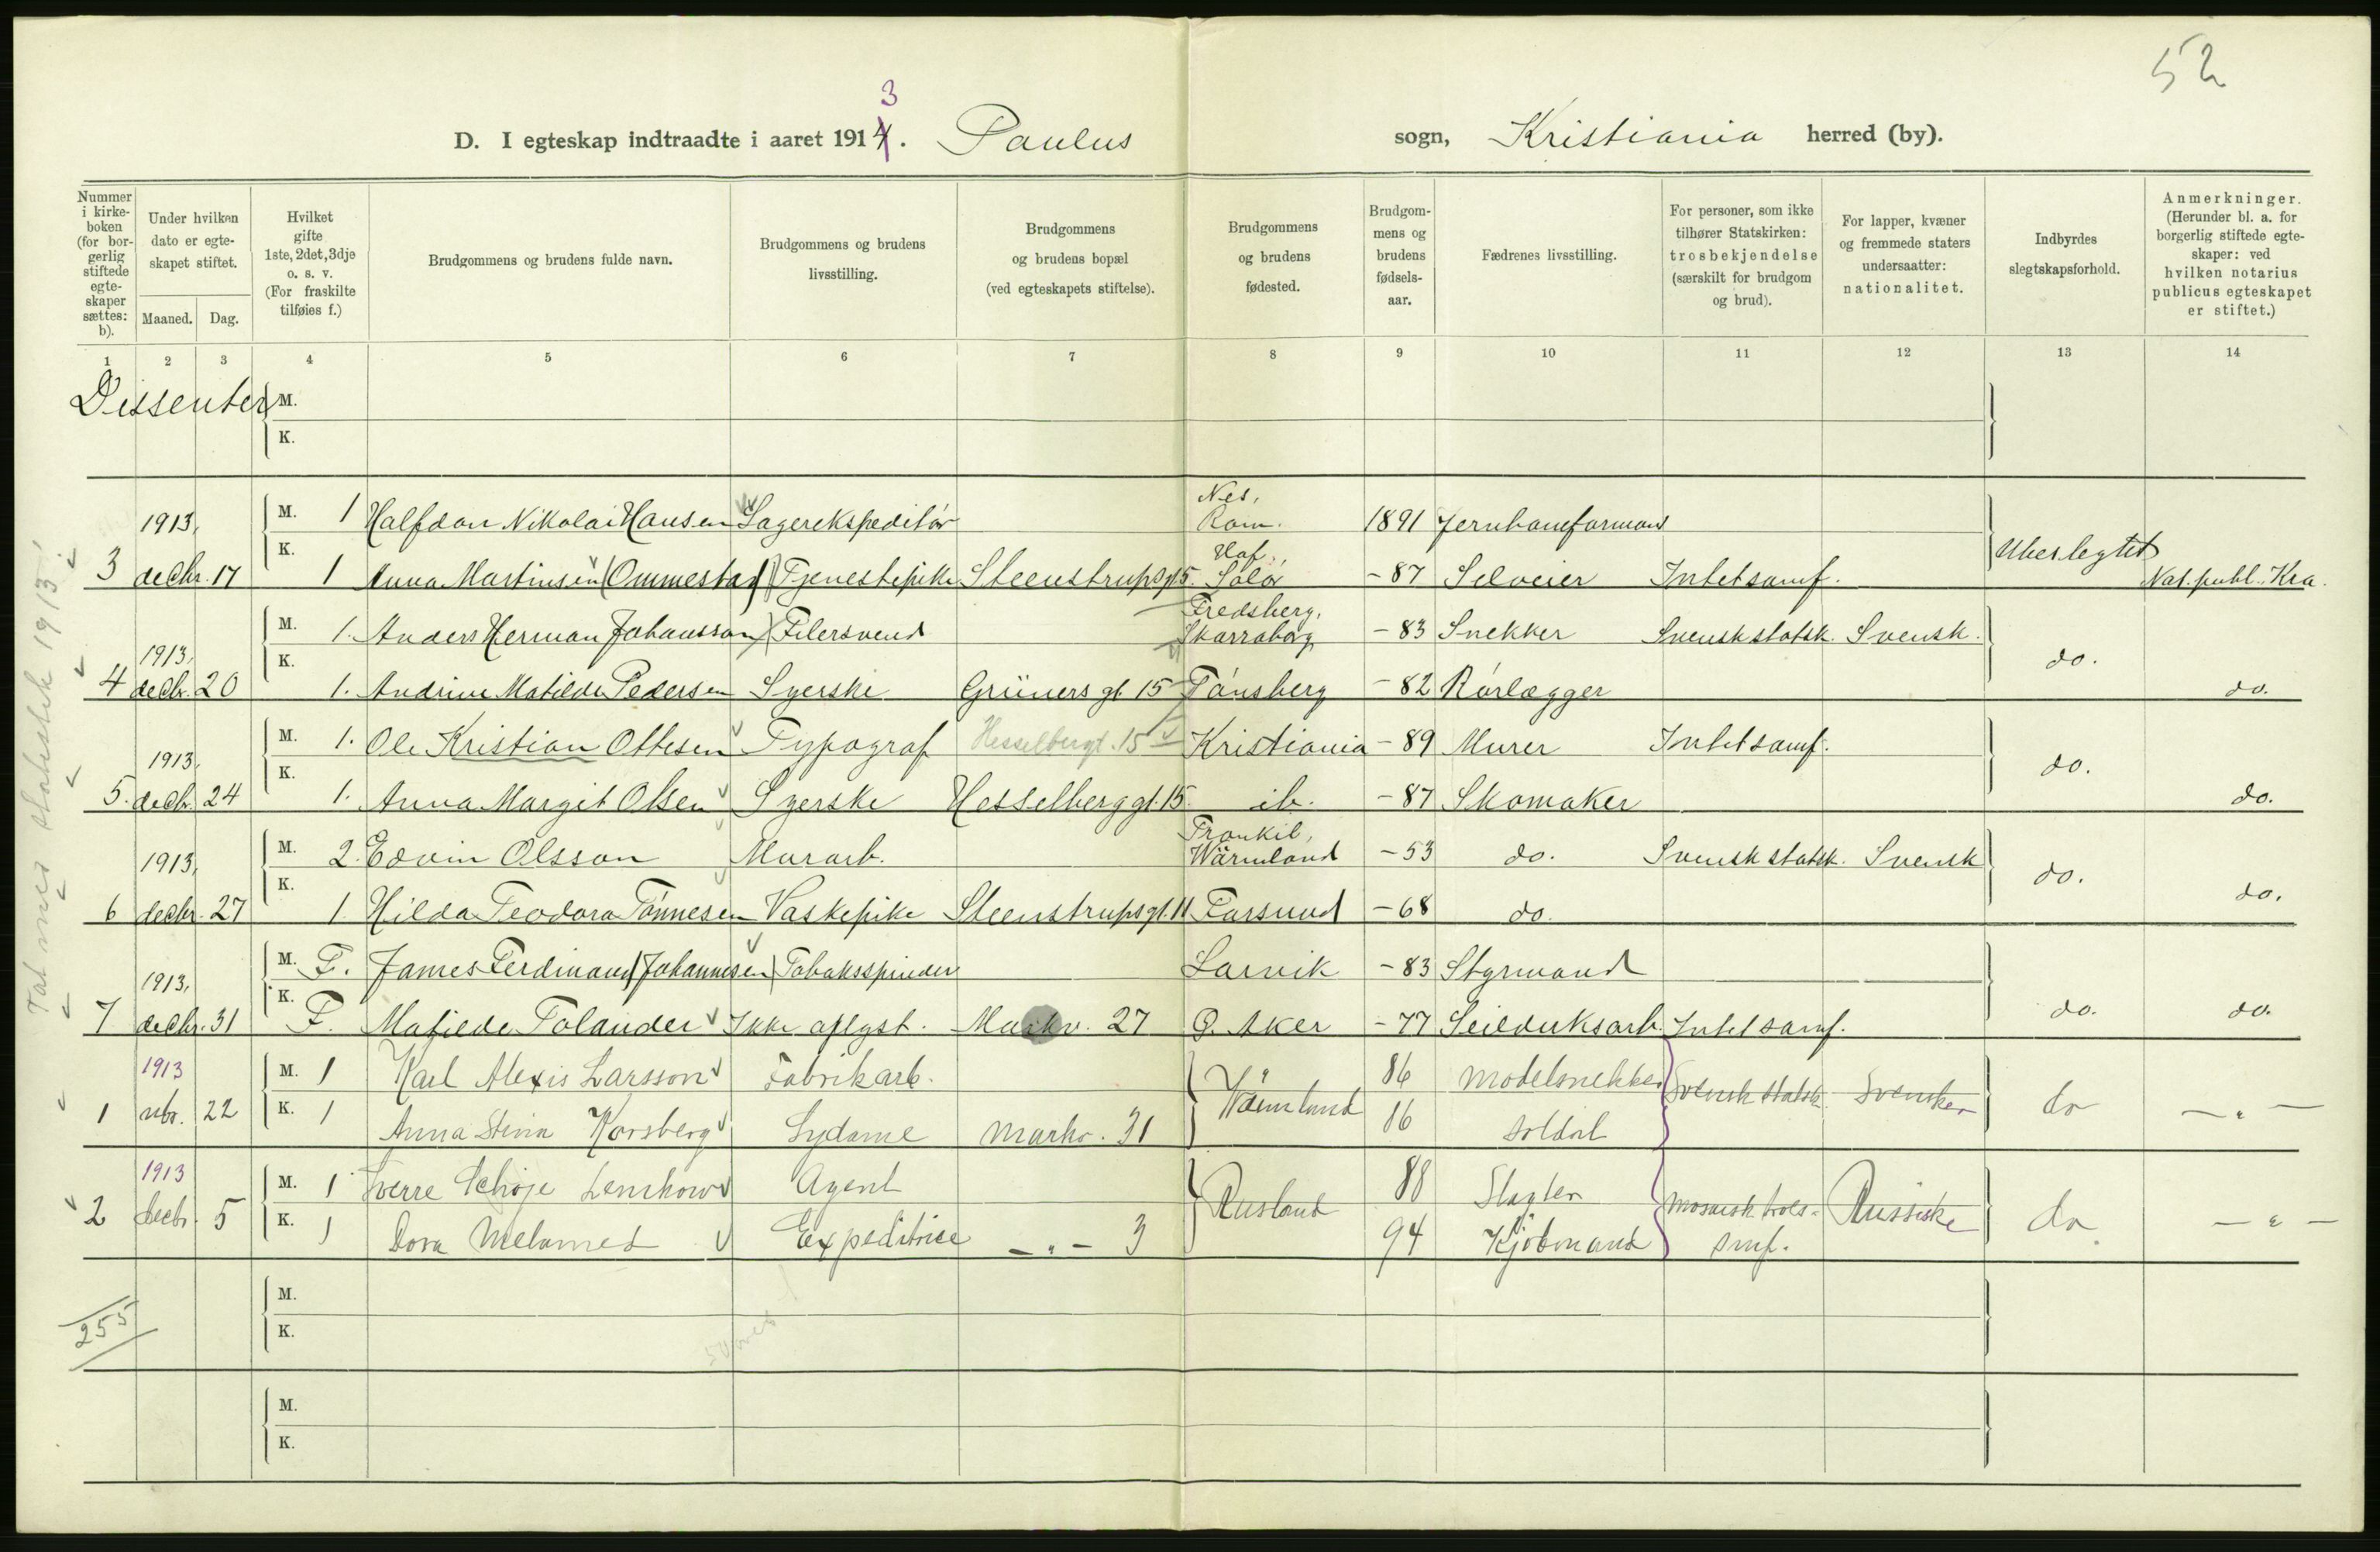 52
D. I egteskap indtraadte i aaret 1913. Paulus sogn, Kristiania herred (by).
Nummer i kirkeboken (for borgerlig stiftede egteskaper sættes: b).
Under hvilken dato er egteskapet stiftet.
Maaned. Dag.
Hvilket gifte 1ste, 2det, 3dje o. s. v. (For fraskilte tilføies f.)
Brudgommens og brudens fulde navn.
Brudgommens og brudens livsstilling.
Brudgommens og brudens bopæl (ved egteskapets stiftelse).
Brudgommens og brudens fødested.
Brudgommens og brudens fødselsaar.
Fædrenes livsstilling.
For personer, som ikke tilhører Statskirken: trosbekjendelse (særskilt for brudgom og brud).
For lapper, kvæner og fremmede staters undersaatter: nationalitet.
Indbyrdes slegtskapsforhold.
Anmerkninger. (Herunder bl. a. for borgerlig stiftede egteskaper: ved hvilken notarius publicus egteskapet er stiftet.)
1 2 3 4 5 6 7 8 9 10 11 12 13 14
Dissenter M.
K.
1913, M. 1 Halfdan Nikolai Hansen Lagerekspeditør Nes, Rom. 1891 Jernbaneformand
3 decbr. 17 K. 1 Anna Martinsen (Ommestad) Tjenestepike Steenstrupsgt 5. Hof, Solør -87 Selveier Intet samf. Ubeslegtet Not. publ. Kra.
M. 1. Anders Herman Johansson Filersvend Fredsberg, Skaraborg -83 Snekker Svensk statsk. Svensk.
1913, 4 decbr. 20 K. 1. Andrine Matilde Pedersen Syerske Grüners gt 15 Tønsberg -82 Rørlægger do. do.
M. 1. Ole Kristian Ottesen Typograf Hesselbergt. 15 Kristiania -89 Murer Intet samf.
1913, 5. decbr. 24 K. 1. Anna Margit Olsen Syerske Hesselberggt. 15 ib. -87 Skomaker do. do.
1913, M. 2. Edvin Olsson Murarb. Trankil, Wärmland -53 do. Svensk statsk. Svensk
6 decbr. 27 K. 1. Hilda Teodora Tønnesen Vaskepike Steenstrupsgt. 11 Farsund -68 do. do. do.
1913, M. F. James Ferdinand Johannesen Tobaksspinder Larvik -83 Styrmand
7 decbr. 31 K. F. Matilde Tolander Ikke oplyst. Markv. 27 Ø. Aker -77 Seilduksarb. Intet samf. do. do.
1913 M. 1 Karl Alexis Larsson Fabrikarb. Wärmland 86 Modelsnekker Svensk statsk. Svensker
1 nbr. 22 K. 1 Anna Stina Korsberg Sydame Markv. 31 86 Soldat do — " —
1913 M. 1 Sverre Schøje Lemkow Agent Rusland 88 Slagter Mosaisk tros- Russiske
2 decbr. 5 K. 1 Dora Melamed Expeditrice — " — 3 94 Kjøbmand smf. do. — " —
M.
K.
255
M.
K.
Tat med statistik 1913!